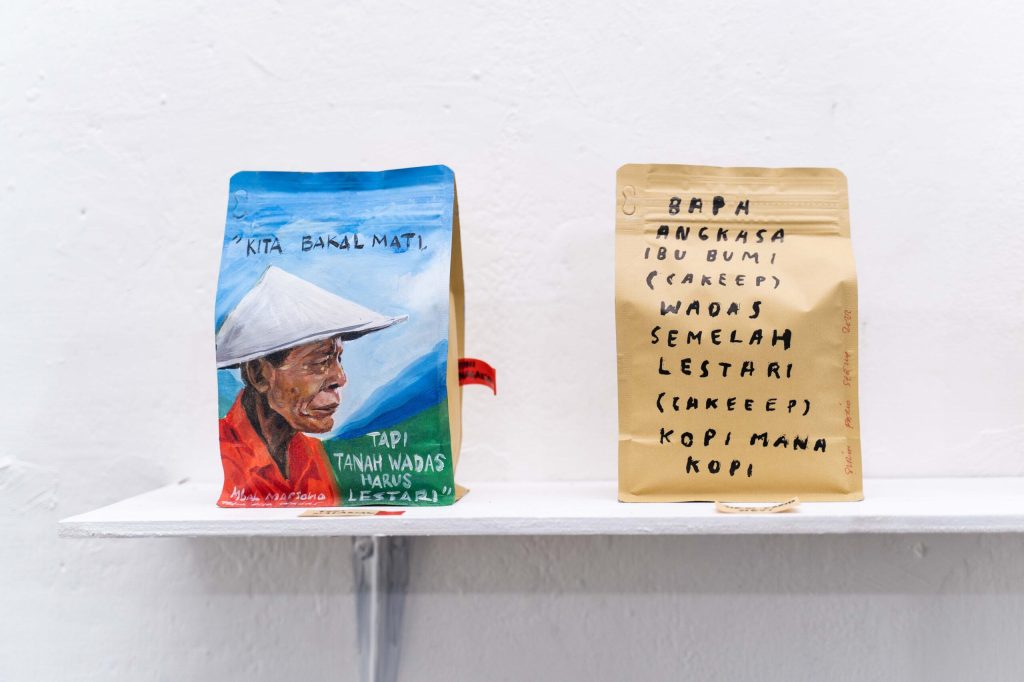 "KITA BAKAL MATI,
TAPI
TANAH WADAS
HARUS
LESTARI"
BAPA
ANGKASA
IBU BUMI
(CAKEEP)
WADAS
SEMELAH
LESTARI
(CAKEEEP)
KOPI MANA
KOPI
2022